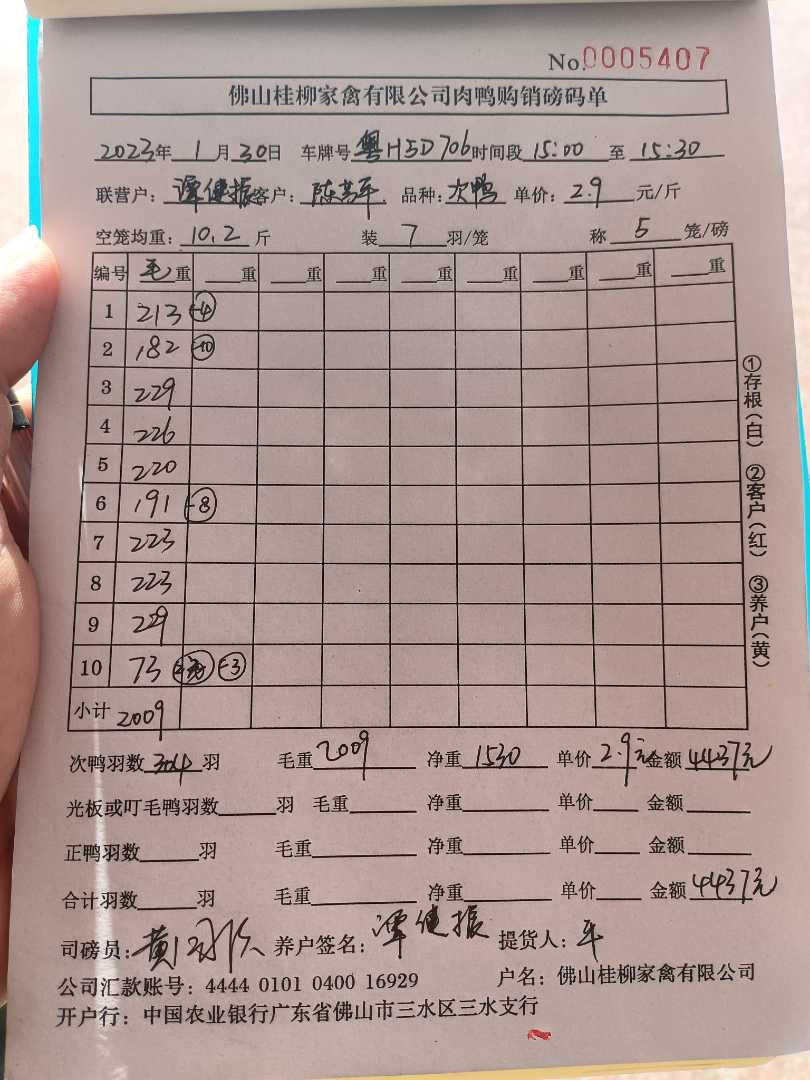 No.0005407
佛山桂柳家禽有限公司肉鸭购销磅码单
2023年 1 月 30日 车牌号 粤H5D706 时间段 15:00 至 15:30
联营户: 谭健振 客户: 陈高平 品种: 次鸭 单价: 2.9 元/斤
空笼均重: 10.2 斤 装 7 羽/笼 称 5 笼/磅
编号 毛重 重 重 重 重 重 重 重 重
1 213 -4
2 182 -10
3 229
4 226
5 220
6 191 -8
7 223
8 223
9 229
10 73 -3
小计 2009
①存根(白) ②客户(红) ③养户(黄)
次鸭羽数 羽 毛重 2009 净重 1530 单价 2.9元 金额 4437元
光板或叮毛鸭羽数 羽 毛重 净重 单价 金额
正鸭羽数 羽 毛重 净重 单价 金额
合计羽数 羽 毛重 净重 单价 金额 4437元
司磅员: 黄 养户签名: 谭健振 提货人: 平
公司汇款账号: 4444 0101 0400 16929 户名: 佛山桂柳家禽有限公司
开户行: 中国农业银行广东省佛山市三水区三水支行